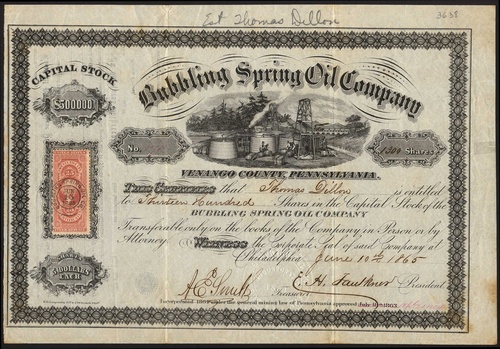 Est Thomas Dillon
3638
CAPITAL STOCK
$500000
Bubbling Spring Oil Company
No.
1300 Shares
VENANGO COUNTY, PENNSYLVANIA
This Certifies that Thomas Dillon is entitled
to Thirteen Hundred Shares in the Capital Stock of the
BUBBLING SPRING OIL COMPANY
Transferable only on the books of the Company in Person or by
Attorney Witness the Corporate Seal of said Company at
Philadelphia June 10th 1865
SHARES
DOLLARS
EACH
A E Smith Treasurer
E. H. Faulkner President
Incorporated under the general mining law of Pennsylvania approved July 18 1863